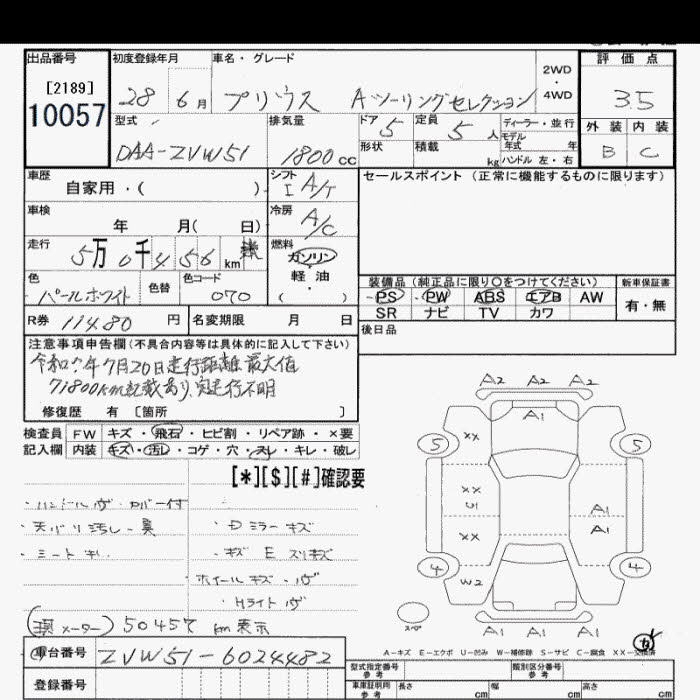 出品番号 初度登録年月 車名・グレード 評価点
[2189] 2WD
10057 28 6月 プリウス Aツーリングセレクション 4WD 3.5
型式 排気量 ドア 定員 ディーラー・並行 外装 内装
DAA-ZVW51 1800cc 5 5人 モデル年式 年 B C
形状 積載 kg ハンドル 左・右
車歴 シフト セールスポイント (正常に機能するものに限ります)
自家用・( ) I A/T
車検 冷房
年 月( 日) A/C
走行 燃料
5万0千456km ガソリン
軽油
( )
色 色替 色コード 装備品 (純正品に限り○をつけてください) 新車保証書
パールホワイト 070 PS PW ABS エアB AW 有・無
SR ナビ TV カワ
R券 11480円 名変期限 月 日 後日品
注意事項申告欄(不具合内容等は具体的に記入して下さい)
年7月20日走行距離最大値
71800km記載あり、走行不明
修復歴 有 [箇所 ]
検査員 FW キズ・飛石・ヒビ割・リペア跡・×要
記入欄 内装 キズ・汚レ・コゲ・穴・スレ・キレ・破レ
[*][$][#]確認要
・Dミラーキズ
ホイールキズ
・Hライト
A2 A2 A2
A1
5 XX 5
XX
U1 A1
XX A1
4 W2 4
A1 A1 A1
スペア
A-キズ E-エクボ U-凹み W-補修跡 S-サビ C-腐食 XX-交換済
(現メーター) 50457 km表示
車台番号 ZVW51-6024482
登録番号
型式指定番号 参考 類別区分番号 参考
車庫証明用 参考 長さ cm 幅 cm 高さ cm